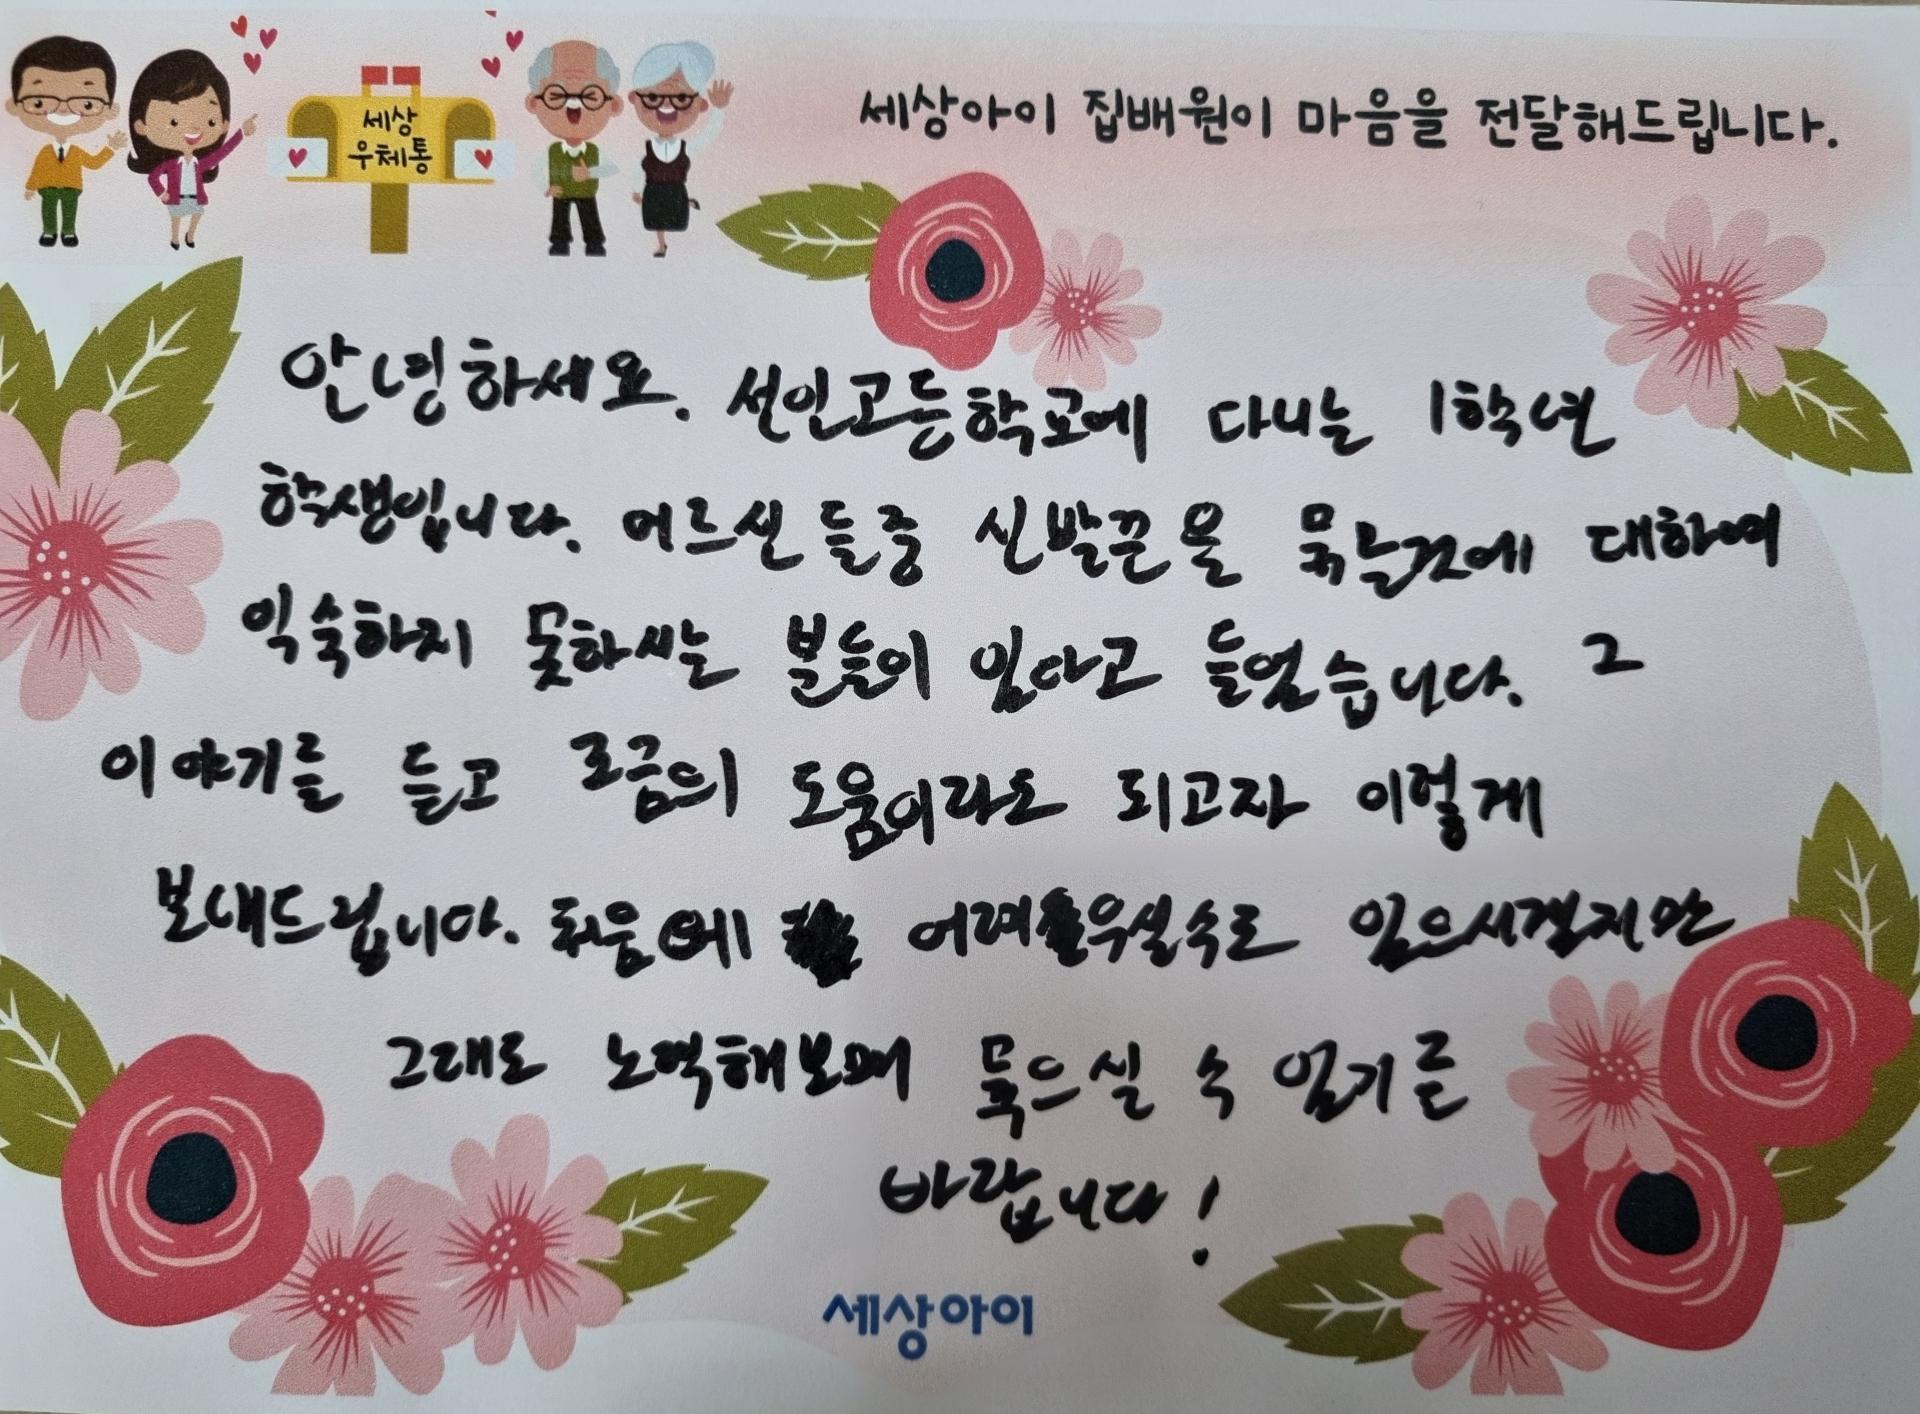 세상
우체통
세상아이 집배원이 마음을 전달해드립니다.
안녕하세요. 선인고등학교에 다니는 1학년
학생입니다. 어르신들중 신발끈을 묶는것에 대하여
익숙하지 못하시는 분들이 있다고 들었습니다. 그
이야기를 듣고 조금의 도움이라도 되고자 이렇게
보내드립니다. 처음에 어려우실수도 있으시겠지만
그대로 노력해보며 묶으실 수 있기를
바랍니다!
세상아이